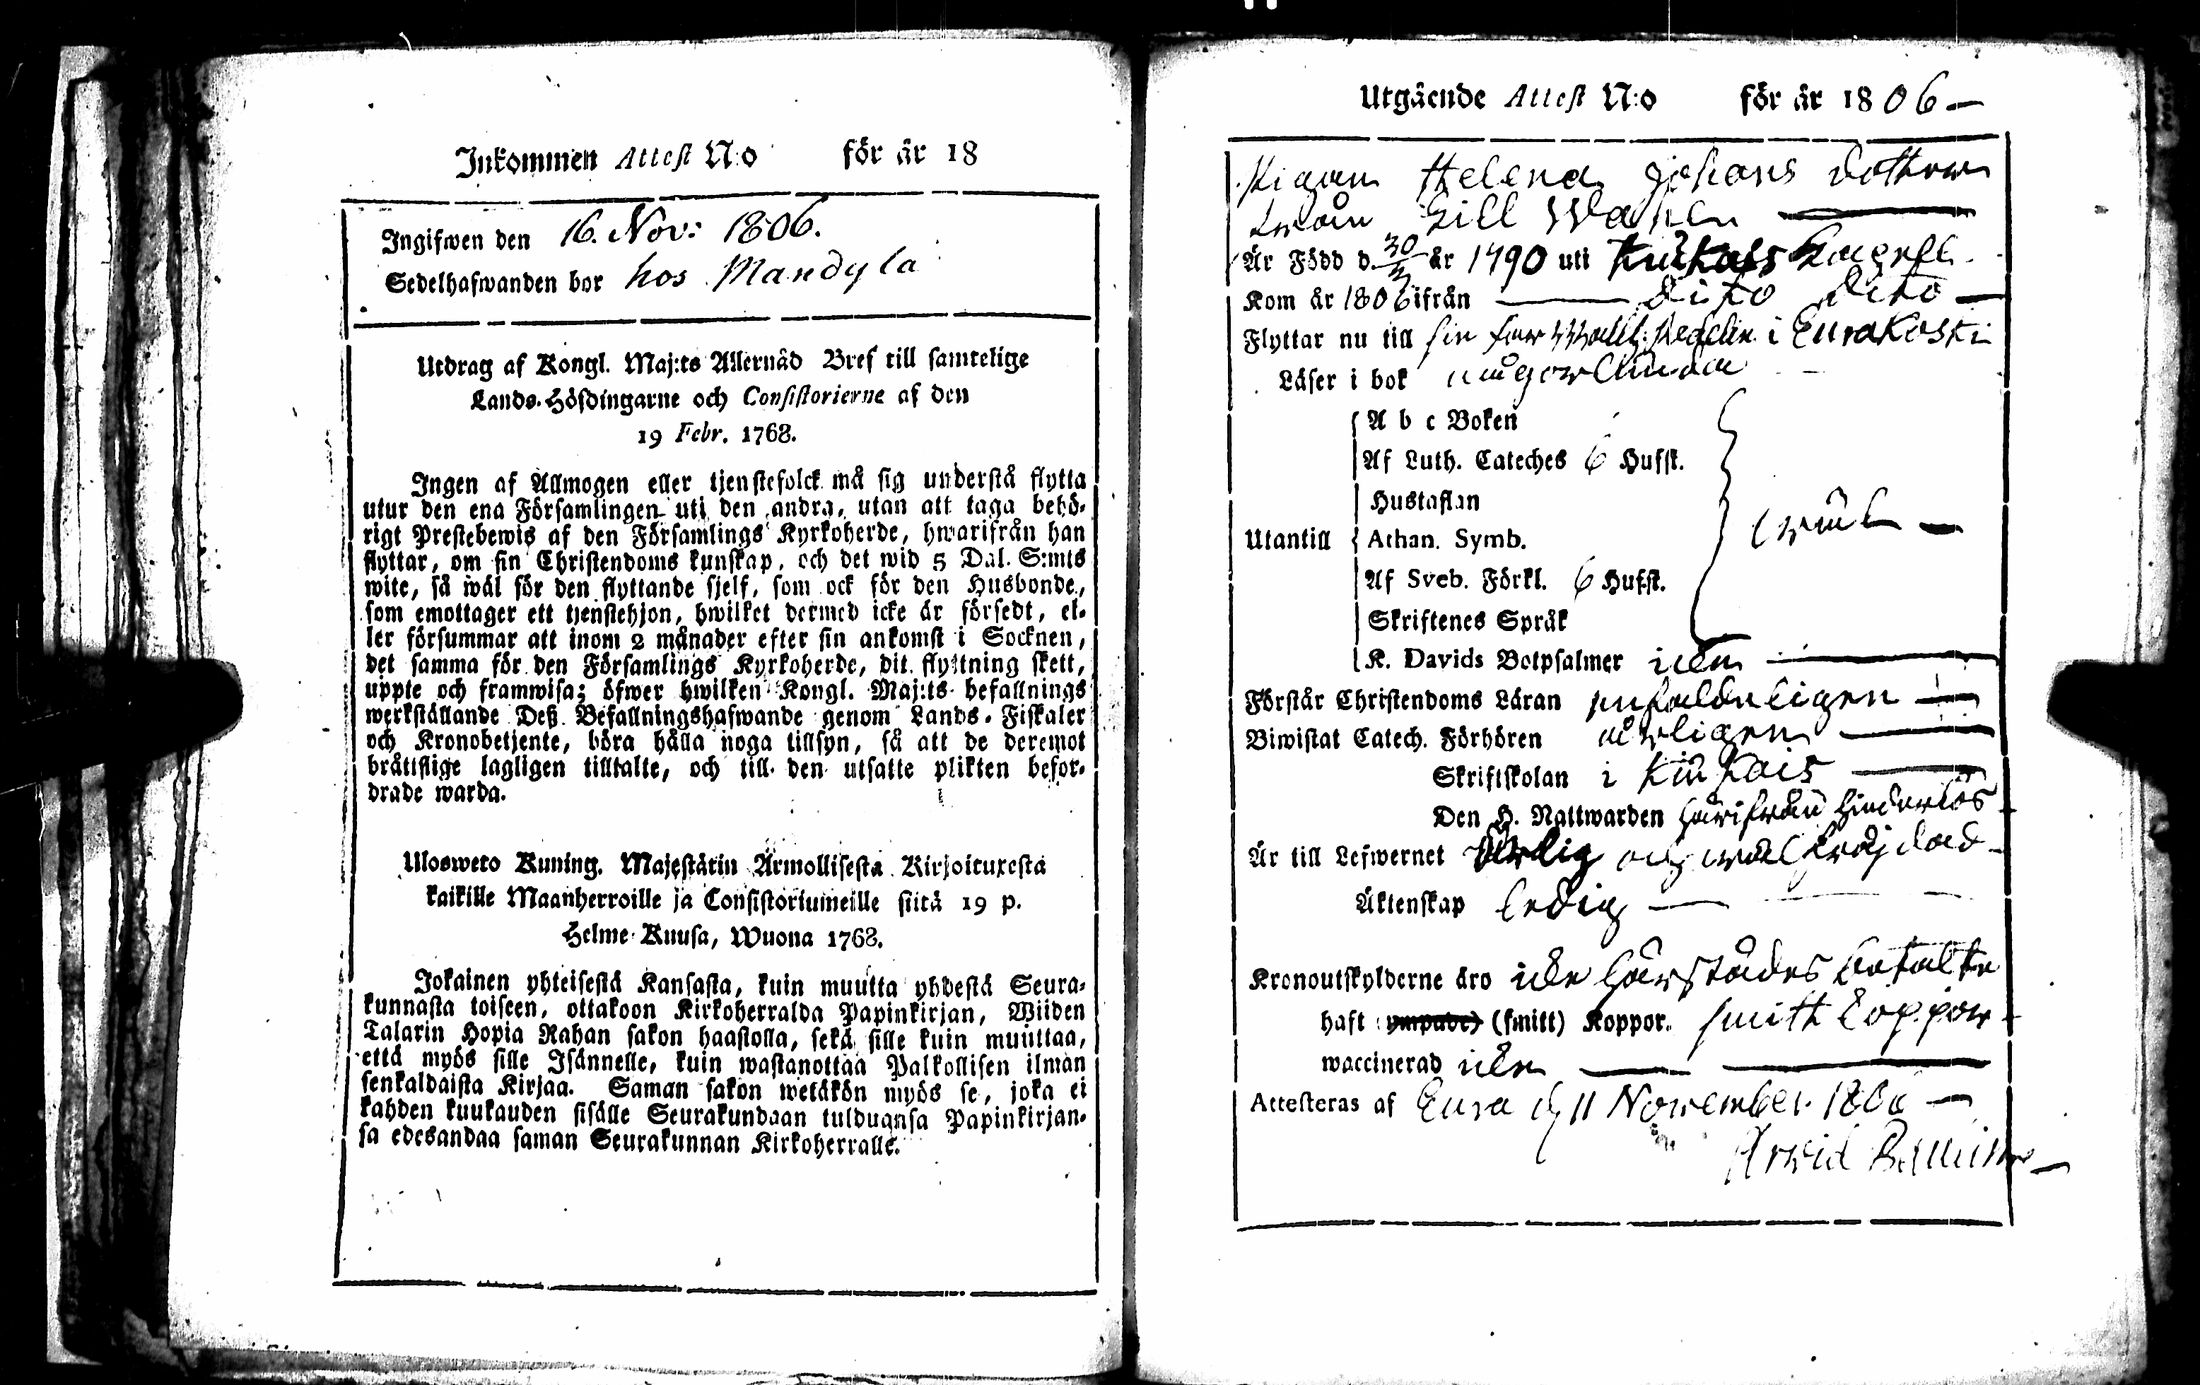 Inkommen Attest N:o för år 18
Ingifwen den 16. Nov: 1806.
Sedelhafwanden bor hos Mandyla
Utdrag af Kongl. Maj:ts Allernåd Bref till samtelige
Lands-Höfdingarne och Consistorierne af den
19 Febr. 1768.
Ingen af Allmogen eller tjenstefolck må sig understå flytta
utur den ena Församlingen uti den andra, utan att taga behö-
rigt Prestebewis af den Församlings Kyrkoherde, hwarifrån han
flyttar, om sin Christendoms kunskap, och det wid 5 Dal. S:mts
wite, så wäl för den flyttande sjelf, som ock för den Husbonde,
som emottager ett tjenstehjon, hwilket dermed icke är försedt, el-
ler försummar att inom 2 månader efter sin ankomst i Socknen,
det samma för den Församlings Kyrkoherde, dit flyttning skett,
uppte och framwisa; öfwer hwilken Kongl. Maj:ts befallnings
werkställande Deß Befallningshafwande genom Lands-Fiskaler
och Kronobetjente, böra hålla noga tillsyn, så att de deremot
bråttslige lagligen tilltalte, och till den utsatte plikten befor-
drade warda.
Ulosweto Kuning. Majestätin Armollisesta Kirjoituxesta
kaikille Maanherroille ja Consistoriumeille siitä 19 p.
Helme-Kuusa, Wuona 1768.
Jokainen yhteisestä Kansasta, kuin muutta yhdestä Seura-
kunnasta toiseen, ottakoon Kirkoherralda Papinkirjan, Wiiden
Talarin Hopia Rahan sakon haastolla, sekä sille kuin muuttaa,
että myös sille Isännelle, kuin wastanottaa Palkollisen ilman
senkaldaista Kirjaa. Saman sakon wetäkön myös se, joka ei
kahden kuukauden sisälle Seurakundaan tulduansa Papinkirjan-
sa edesandaa saman Seurakunnan Kirkoherralle.
Utgående Attest N:o för år 1806
Pigan Helena Johans dotter
från
Är Född d. 30 år 1790 uti
Kom år 1806 ifrån dito dito
Flyttar nu till sin far i Eurakoski
Läser i bok
A b c Boken
Af Luth. Cateches 6 Hufst.
Hustaflan
Utantill Athan. Symb.
Af Sveb. Förkl. 6 Hufst.
Skriftenes Språk
K. Davids Botpsalmer icke
Förstår Christendoms Läran enfaldeligen
Biwistat Catech. Förhören årligen
Skriftskolan i Kiukais
Den H. Nattwarden härifrån hinderlös
Är till Lefwernet Ärlig och wäl fräjdad
Äktenskap ledig
Kronoutskylderne äro icke härstädes betalte
haft (ympade) (smitt) Koppor. smitt koppor
waccinerad icke
Attesteras af Eura d. 11 November 1806
Arwid